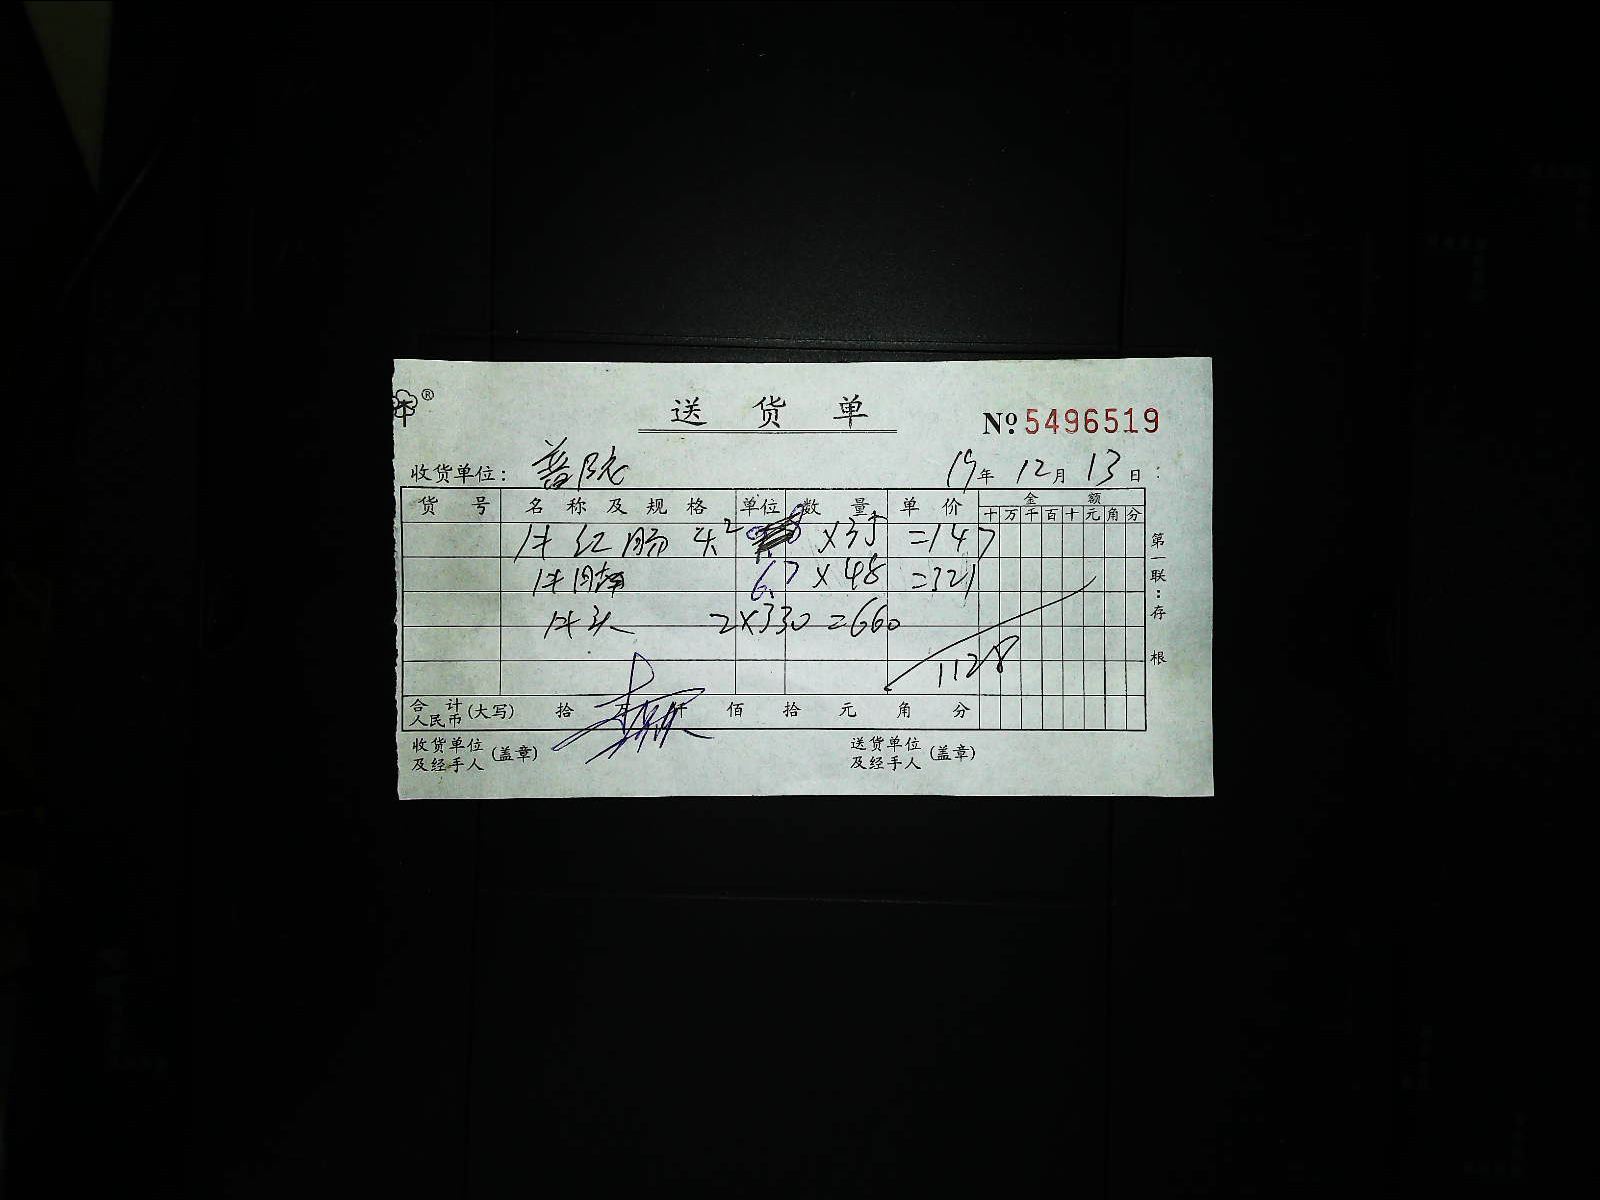 ®
送货单
№ 5496519
收货单位：普陀 19年 12月 13日
货号 名称及规格 单位 数量 单价 金额
十万千百十元角分
牛红肠 头2 ×35 =147
牛腩 6.7 ×48 =321
牛头 2×330 =660
1128
合计人民币(大写) 拾 万 仟 佰 拾 元 角 分
收货单位及经手人(盖章) 送货单位及经手人(盖章)
第一联：存根